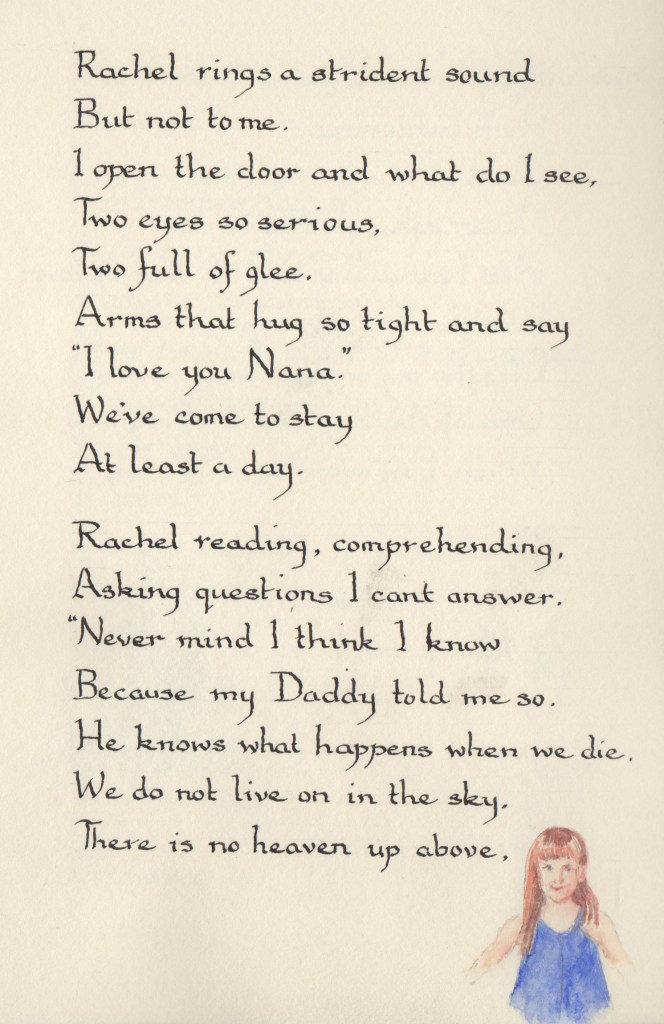 Rachel rings a strident sound
But not to me.
I open the door and what do I see,
Two eyes so serious,
Two full of glee.
Arms that hug so tight and say
"I love you Nana."
We've come to stay
At least a day.
Rachel reading, comprehending,
Asking questions I cant answer.
"Never mind I think I know
Because my Daddy told me so.
He knows what happens when we die.
We do not live on in the sky.
There is no heaven up above.